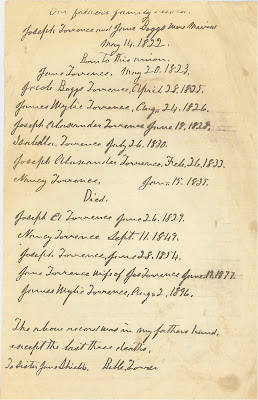 Our fathers family record.
Joseph Torrence and Jane Boggs were Married
May 14. 1822.
Born to this union.
Jane Torrence, May 20. 1823.
Jacob Boggs Torrence, April 28. 1825.
James Wylie Torrence, Aug. 24. 1826.
Joseph Alexander Torrence June 18, 1828.
Isabella Torrence July 26. 1830.
Joseph Alexander Torrence, Feb. 26. 1833.
Nancy Torrence, Jan. 15. 1835.
Died.
Joseph A Torrence June 26. 1829.
Nancy Torrence Sept. 11. 1849.
Joseph Torrence, June 28. 1854.
Jane Torrence wife of Jos Torrence June 19. 1877.
James Wylie Torrence, Aug 2, 1896.
The above record was in my fathers hand,
except the last three deaths.
To Sister Jane Shields. Belle Torrence